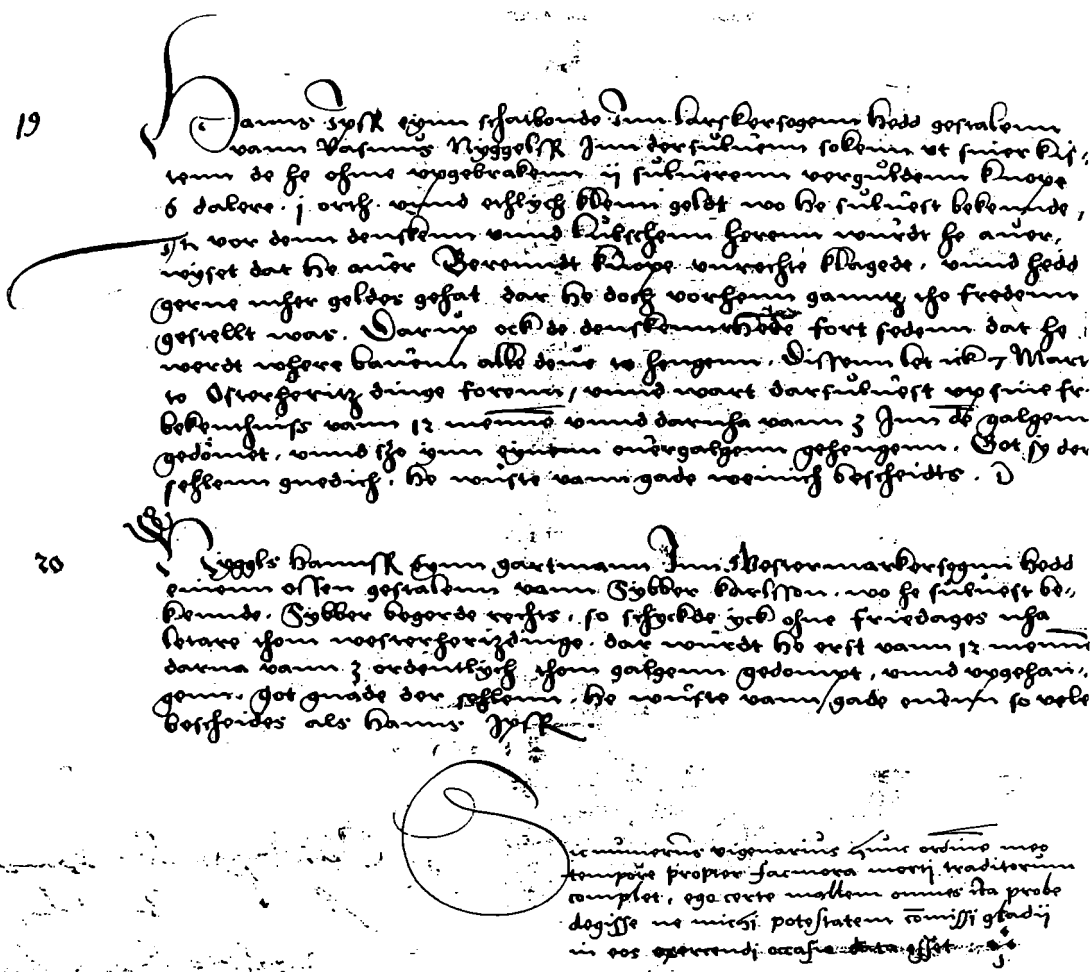 19
Hanns Ipsß eynn schatbonde Inn Larskersogenn hedd gestalenn
vann Rasmus Nyggelsß Inn dersuluenn sokenn vt siner kis,,
tenn de he ohme vpgebrakenn ij suluerenn verguldenn knope
6 dalere . j orth . vnnd ethlych klenn geldt wo he suluest bekennde,
vor denn denskenn vnnd Lubschenn herenn wurdt he auer,
wyset dat he auer Berenndt knope vnrechte klagede . vnnd hedd
gerne mher geldes gehat dar he doch vorhenn ganntz tho fredenn
gestellt was . Darup ock de denskenn hedde fort sedenn dat he
werdt where bauenn alle deue to hengenn . Dissenn let ick 7 Mart
to Osterheritz dinge forenn / vnnd wart darsuluest vp sine fr
bekenthniss vann 12 menne vnnd darnha vann 3 Inn de galgenn
gedomet, vnnd tho ynn eynenn ouergalgenn gehengenn . Got sy der
sehlenn gnedich . he wuste vann gade weinich bescheidts .
20
Nyggls Hannsß Eynn gartmann Inn Westermarkersogenn hedd
einenn ossen gestalenn vann Sybber Karlsson . wo he suluest be,,
kennde . Sybber begerde rechts . so schyckde yck ohne friedages nha
letare thom westerheritzdinge . dar wurdt he erst vann 12 menn
darna vann 3 ordentlych thom galgenn gedompt, vnnd vpgehan,
genn . got gnade der sehlenn . he wuste vann gade euenn so vele
bescheides als Hanns Ipsß
Sic numerus vigenarius hunc ordine meo
tempore propter facinora morti traditorum
complet, ego certe mallem omnes ita probe
degisse ne michi potestatem comissi gladii
in eos exercendi occasio data esset .